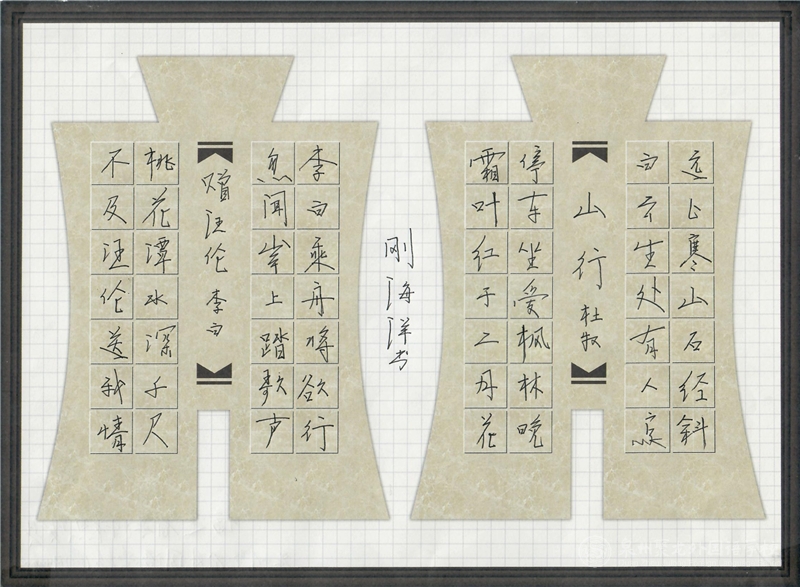 远上寒山石经斜
白云生处有人家
山行 杜牧
停车坐爱枫林晚
霜叶红于二月花
刚海洋书
李白乘舟将欲行
忽闻岸上踏歌声
赠汪伦 李白
桃花潭水深千尺
不及汪伦送我情